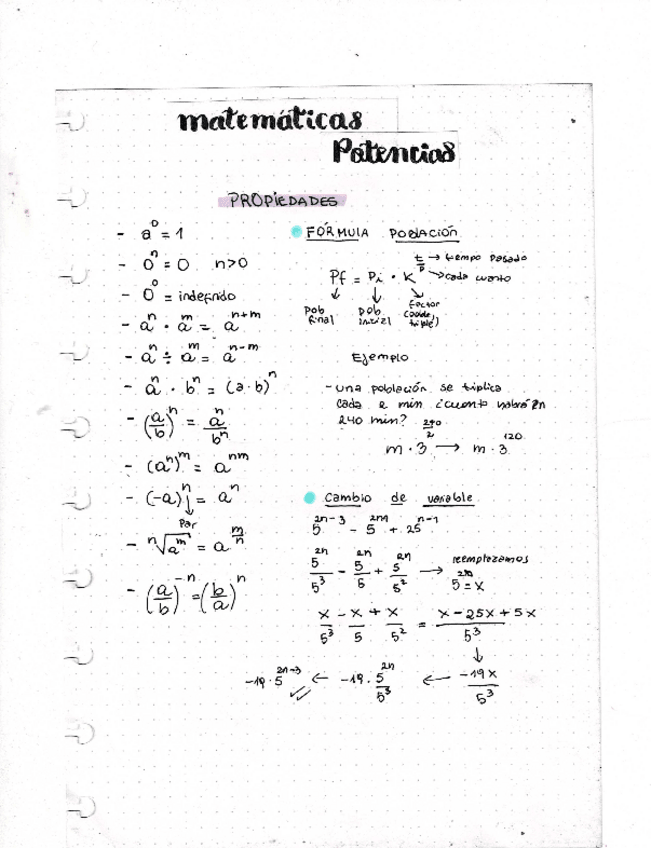 matemáticas
Potencias
PROPIEDADES
- a⁰ = 1
- 0ⁿ = 0 n>0
- 0⁰ = indefinido
- aⁿ · aᵐ = aⁿ⁺ᵐ
- aⁿ ÷ aᵐ = aⁿ⁻ᵐ
- aⁿ · bⁿ = (a·b)ⁿ
- (a/b)ⁿ = aⁿ/bⁿ
- (aⁿ)ᵐ = aⁿᵐ
- (-a)ⁿ = aⁿ
↓ Par
- ⁿ√aᵐ = a^(m/n)
- (a/b)⁻ⁿ = (b/a)ⁿ
FÓRMULA POBLACIÓN
t → tiempo pasado
Pf = Pi · K → cada cuanto
↓ ↓ ↘
pob final
pob inicial
factor (doble, triple)
Ejemplo
- una población se triplica
cada 2 min ¿cuanto habrá en
240 min?
m · 3^(240/2) → m · 3¹²⁰
Cambio de variable
5²ⁿ⁻³ - 5²ⁿ⁻¹ + 25ⁿ⁻¹
5²ⁿ/5³ - 5²ⁿ/5 + 5²ⁿ/5² → reemplazamos
5²ⁿ = x
x/5³ - x/5 + x/5² = (x - 25x + 5x)/5³
↓
-19·5²ⁿ⁻³ ← -19·5²ⁿ/5³ ← -19x/5³